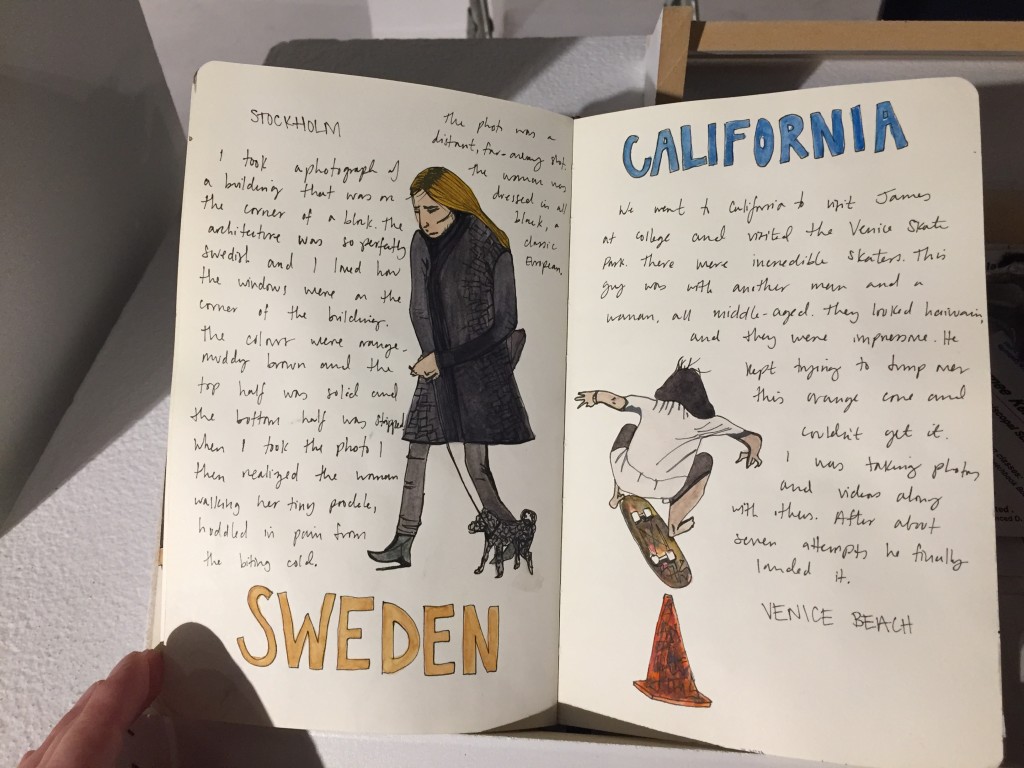 STOCKHOLM
I took a photograph of
a building that was on
the corner of a block. The
architecture was so perfectly
swedish and I loved how
the windows were on the
corner of the building.
The colours were orange-
muddy brown and the
top half was solid and
the bottom half was stripped
When I took the photo I
then realized the woman
walking her tiny poodle,
huddled in pain from
the biting cold.
The photo was a
distant, far-away shot.
The woman was
dressed in all
black, a
classic
European.
SWEDEN
CALIFORNIA
We went to California to visit James
at college and visited the Venice Skate
Park. There were incredible skaters. This
guy was with another man and a
woman, all middle-aged. They looked Hawaiin,
and they were impressive. He
kept trying to jump over
this orange cone and
couldn't get it.
I was taking photos
and videos along
with others. After about
seven attempts he finally
landed it.
VENICE BEACH